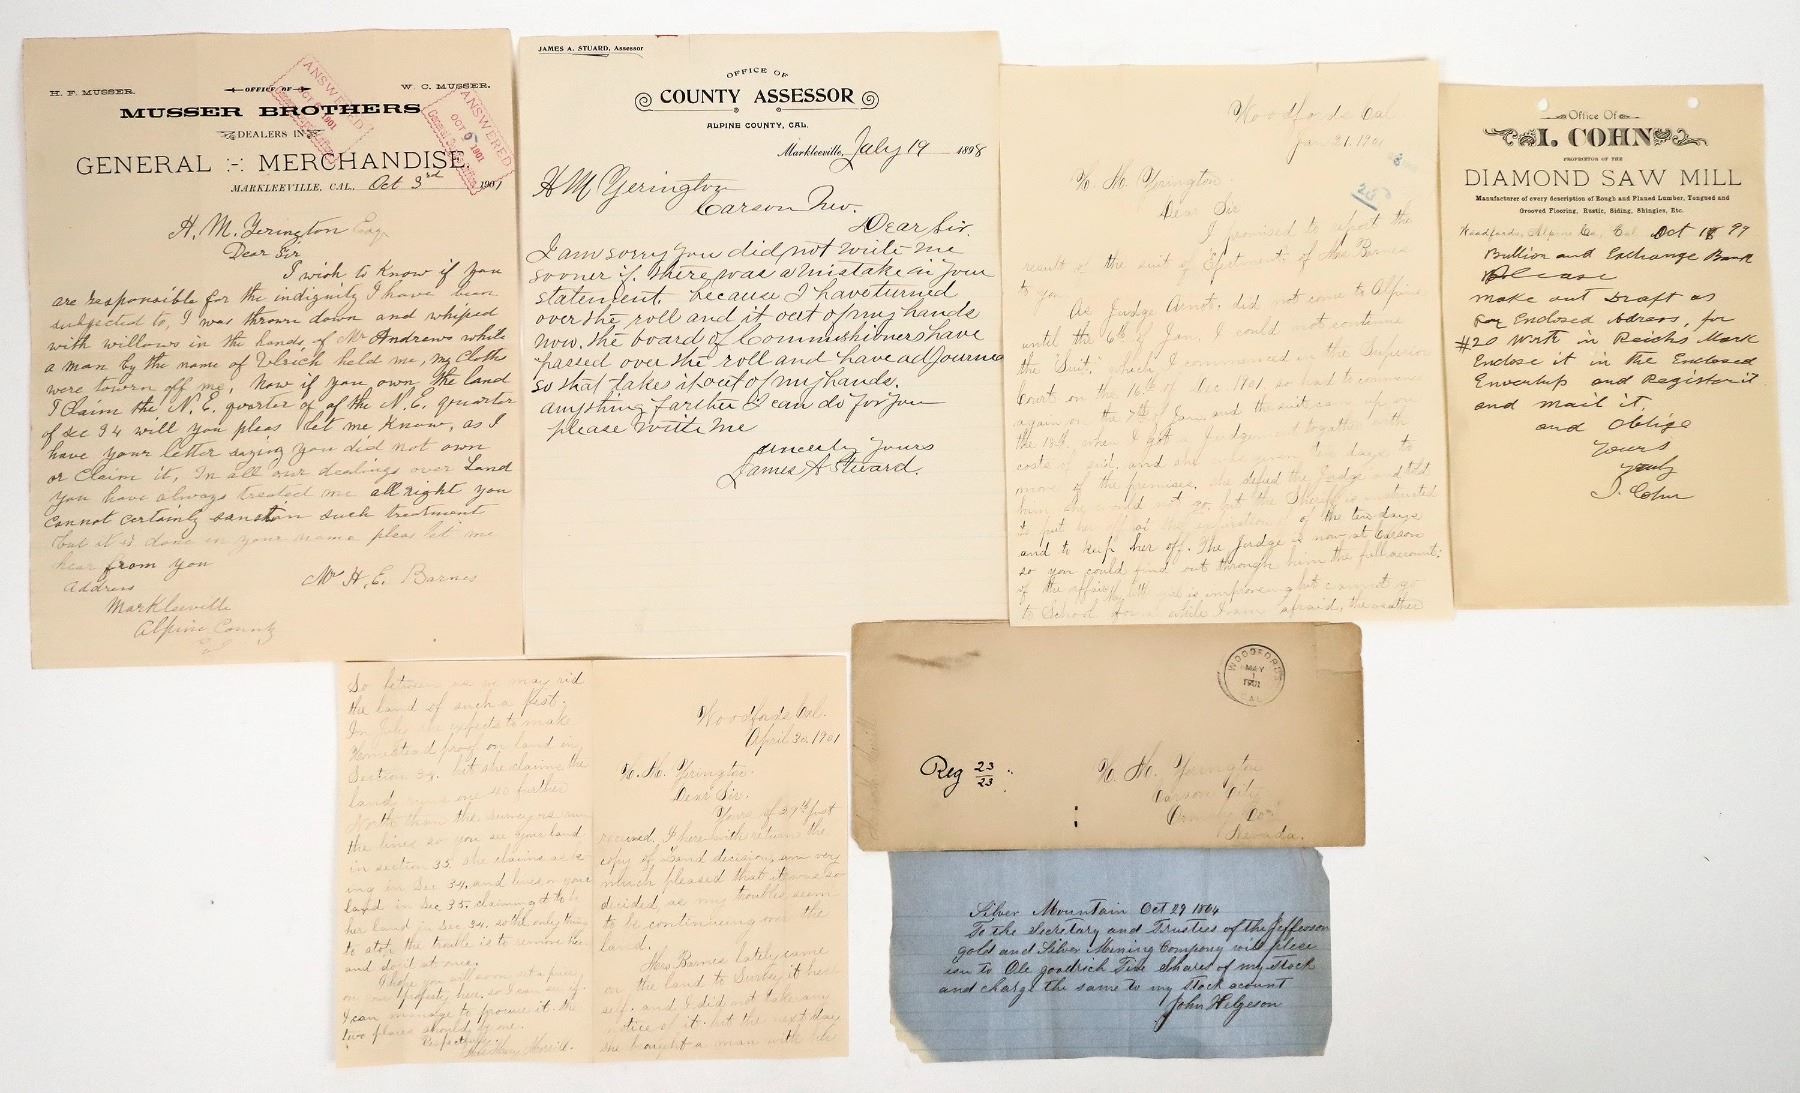 H. F. MUSSER.
OFFICE OF
W. C. MUSSER.
MUSSER BROTHERS
DEALERS IN
GENERAL MERCHANDISE.
MARKLEEVILLE, CAL. Oct 3rd 1901
ANSWERED
OCT 1901
ANSWERED
OCT 1901
H. M. Yerington Esq
Dear Sir
I wish to know if you
are responsible for the indignity I have been
subjected to, I was thrown down and whiped
with willows in the hands of Mr Andrews while
a man by the name of Ulrich held me, my Cloths
were tourn off me, Now if you own the land
I Claim the N.E. quarter of of the N.E. quarter
of Sec 34 will you pleas let me know, as I
have your letter saying you did not own
or Claim it, In all our dealings over Land
you have always treated me all right you
cannot certainly sanction such treatment
but it is done in your name pleas let me
hear from you
Address
Mrs H. E. Barnes
Markleeville
Alpine County
Cal
JAMES A. STUARD, Assessor
OFFICE OF
COUNTY ASSESSOR
ALPINE COUNTY, CAL.
Markleeville, July 19 1898
H M Yerington
Carson Nev.
Dear Sir.
I am sorry you did not write me
sooner if there was a mistake in your
statement. because I have turned
over the roll and it out of my hands
now. the board of Commishioners have
passed over the roll and have adjourned
so that takes it out of my hands.
anything farther I can do for you
please write me
Sincerly Yours
James A Stuard.
Woodfords Cal
Jan 21. 1901
H. M. Yerington.
Dear Sir
I promised to report the
result of the suit of Ejetment of Mrs Barnes
to you
As Judge Arnot. did not come to Alpine
until the 6th of Jan, I could not continue
the "Suit" which I commenced in the Superior
Courts on the 16th of Dec 1901. so had to commence
again on the 7th of Jan, and the suit came up on
the 18th when I got a Judgement togather with
costs of suit. and she was given ten days to
move of the premises. she defied the Judge and told
him she would not go, but the Sheriff is instructed
to put her off at the expiration of the ten days
and to keep her off. The Judge is now at Carson
so you could find out through him the full account
of the affair. My little girl is improveing but cannot go
to School for a while I am afraid, the weather
Office Of
I. COHN
PROPRIETOR OF THE
DIAMOND SAW MILL
Manufacturer of every description of Rough and Planed Lumber, Tongued and
Grooved Flooring, Rustic, Siding, Shingles, Etc.
Woodfords, Alpine Co., Cal Oct 18 99
Bullion and Exchange Bank
Please
make out Draft as
per Enclosed Adress, for
#20 Worth in Reichs Mark
Enclose it in the Enclosed
Envertup and Register it
and mail it,
and Oblige
Yours
Truly
I. Cohn
So between us we may rid
the land of such a pest.
In July she expects to make
Homestead proof on land in
Section 34. but she claims the
land runs one 40 further
North than the surveyers run
the lines so you see your land
in section 35 she claims as be
ing in Sec 34. and lives on your
land in Sec 35. claiming it to be
her land in Sec 34. so the only thing
to stop the trouble is to remove her.
and do it at once.
I hope you will soon set a price
on our property here. so I can see if
I can manage to procure it. the
two places should be one.
Respectfully
Woodfords Cal.
April 30. 1901
H. M. Yerington.
Dear Sir.
Yours of 27th just
received. I herewith return the
copy of Land decision, am very
much pleased that it was so
decided, as my troubles seem
to be continueing over the
land.
Mrs Barnes lately came
on the land to Survey it her
self. and I did not take any
notice of it. but the next day
she brought a man with her
WOODFORDS
MAY
1
1901
CAL.
Reg 23/23
H. M. Yerington
Carson City
Ormsby Co.
Nevada.
Silver Mountain Oct 29 1864
To the Secretary and Trusties of the Jefferson
gold and Silver Mining Company will pleese
isu to Ole goodrich Five Shares of my Stock
and charge the same to my stock acount
John Helgeson